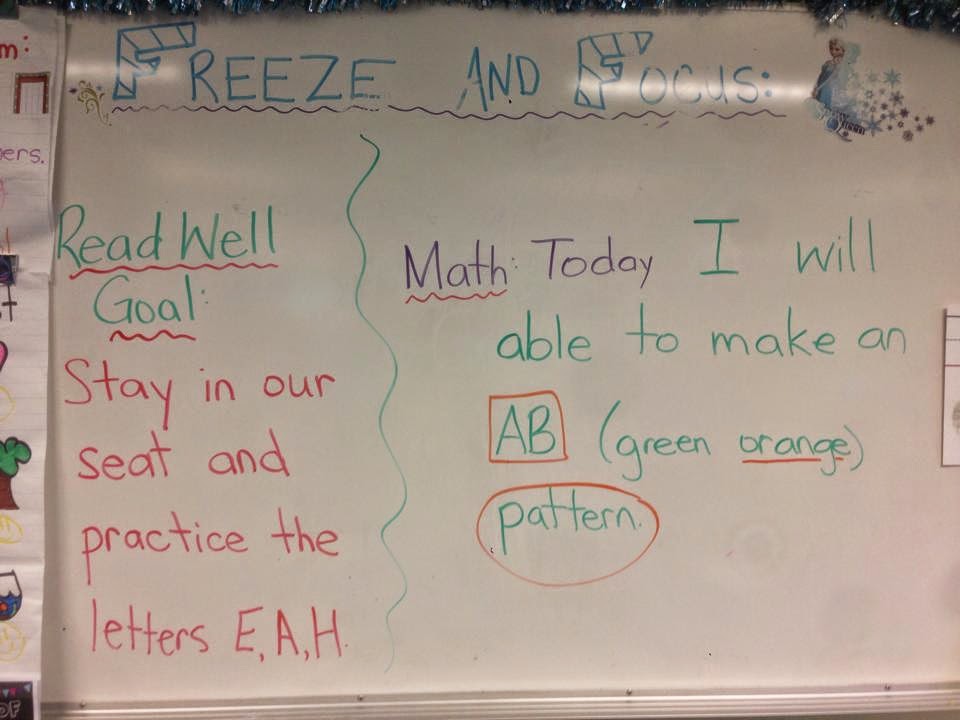 FREEZE AND FOCUS:
Read Well
Goal:
Stay in our
seat and
practice the
letters E, A, H.
Math: Today I will
able to make an
AB (green orange)
pattern.
m:
ers.